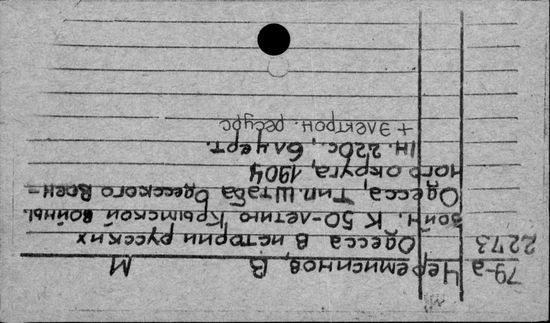 79-а Черемисинов, В М
2273 Одесса в истории русских
войн. К 50-летию Крымской войны.
Одесса, Тип. Штаба Одесского Воен-
ного округа, 1904
Iн. 220с., 6л черт.
+ электрон. ресурс